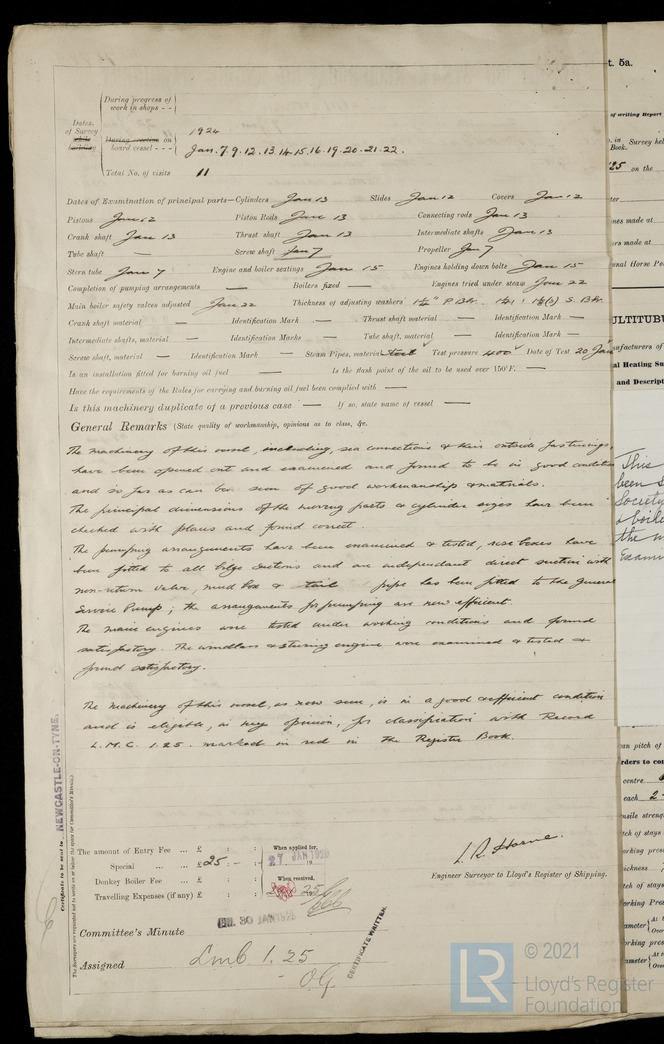 During progress of
work in shops - -
Dates
of Survey
while
building
During erection on
board vessel - - -
1924
Jan. 7. 9. 12. 13. 14. 15. 16. 19. 20. 21. 22.
Total No. of visits 11
Dates of Examination of principal parts—Cylinders Jan 13 Slides Jan 12 Covers Jan 12
Pistons Jan 12 Piston Rods Jan 13 Connecting rods Jan 13
Crank shaft Jan 13 Thrust shaft Jan 13 Intermediate shafts Jan 13
Tube shaft — Screw shaft Jan 7 Propeller Jan 7
Stern tube Jan 7 Engine and boiler seatings Jan 15 Engines holding down bolts Jan 15
Completion of pumping arrangements — Boilers fixed — Engines tried under steam Jan 22
Main boiler safety valves adjusted Jan 22 Thickness of adjusting washers
Crank shaft material — Identification Mark — Thrust shaft material — Identification Mark —
Intermediate shafts, material — Identification Marks — Tube shaft, material — Identification Mark —
Screw shaft, material — Identification Mark — Steam Pipes, material Steel Test pressure 400 Date of Test 20 Jan
Is an installation fitted for burning oil fuel — Is the flash point of the oil to be used over 150°F. —
Have the requirements of the Rules for carrying and burning oil fuel been complied with —
Is this machinery duplicate of a previous case — If so, state name of vessel —
General Remarks (State quality of workmanship, opinions as to class, &c.
The machinery of this vessel, including, sea connections & their outside fastenings,
have been opened out and examined and found to be in good condition
and so far as can be seen of good workmanship & materials.
The principal dimensions of the working parts & cylinder sizes have been
checked with plans and found correct.
The pumping arrangements have been examined & tested, rose boxes have
been fitted to all bilge suctions and an independant direct suction with
non-return valve, mud box & tail pipe has been fitted to the General
Service Pump; the arrangements for pumping are now efficient.
The main engines were tested under working conditions and found
satisfactory. The windlass & steering engine were examined & tested &
found satisfactory.
The machinery of this vessel, as now seen, is in a good & efficient condition
and is eligible, in my opinion, for classification with Record
L.M.C. 1.25. marked in red in the Register Book.
Certificate to be sent to NEWCASTLE-ON-TYNE.
The Surveyors are requested not to write on or below the space for Committee's Minute.
The amount of Entry Fee ... £ : :
Special ... ... £ 25 - :
Donkey Boiler Fee ... £ : :
Travelling Expenses (if any) £ : :
When applied for,
27 JAN 1925
When received,
25
L. R. Horne.
Engineer Surveyor to Lloyd's Register of Shipping.
FRI. 30 JAN 1925
CERTIFICATE WRITTEN.
Committee's Minute
Assigned LMC 1.25
O.G.
t. 5a.
of writing Report
Survey hel
Book.
25 on the
nes made at
rs made at
nal Horse Po
ULTITUBU
ufacturers of
al Heating Su
and Descript
This
been
Society
& boile
the
Exami
an pitch of
rders to co
centre
each 2
nsile streng
tch of stays
orking press
ickness
tch of stays
orking Pres
ameter At
Over
orking press
ameter At
Over
© 2021
LR Lloyd's Register
Foundation